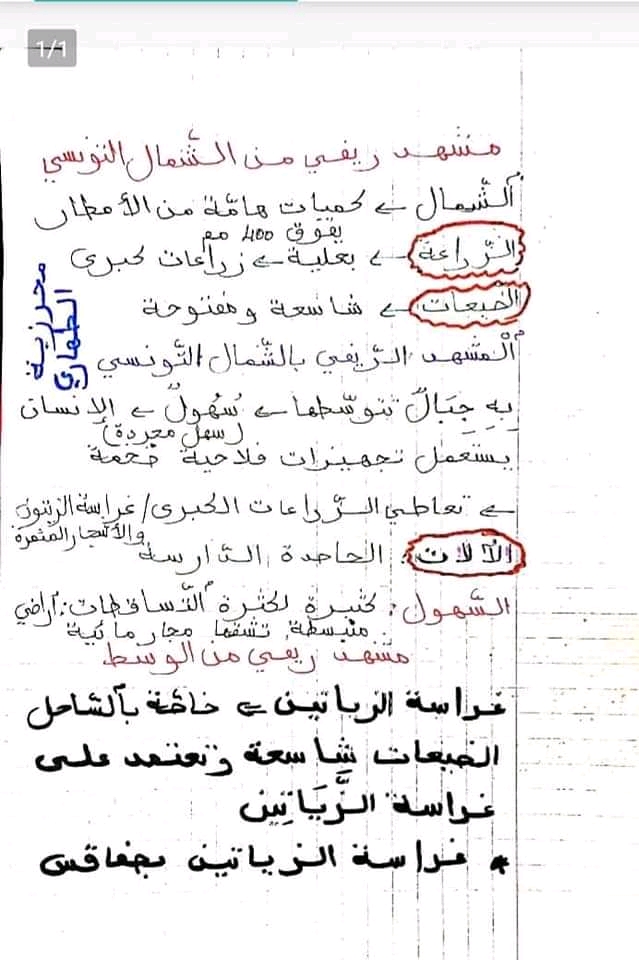 1/1
مشهد ريفي من الشمال التونسي
الشّمال ← كميات هامّة من الأمطار
يفوق 400 مم
الزّراعة ← بعلية ← زراعات كبرى
الضيعات ← شاسعة ومفتوحة
محرزية الطهاري
المشهد الرّيفي بالشّمال التّونسي
بِهِ جِبَالٌ تتوسّطها ← سُهُولٌ ← الإنسان
(سهل مجردة)
يستعمل تجهيزات فلاحية ضخمة
← تعاطي الزّراعات الكبرى/غراسة الزيتون
والأشجار المثمرة
الآلات: الحاصدة، الدّارسة
السّهول: كثيرة لكثرة التّساقطات: أراضي
منبسطة، تشقها مجار مائية
مشهد ريفي من الوسط
غراسة الزياتين ← خاصّة بالسّاحل
الضيعات شاسعة وتعتمد على
غراسة الزَّيَاتِين
* غراسة الزياتين بصفاقس